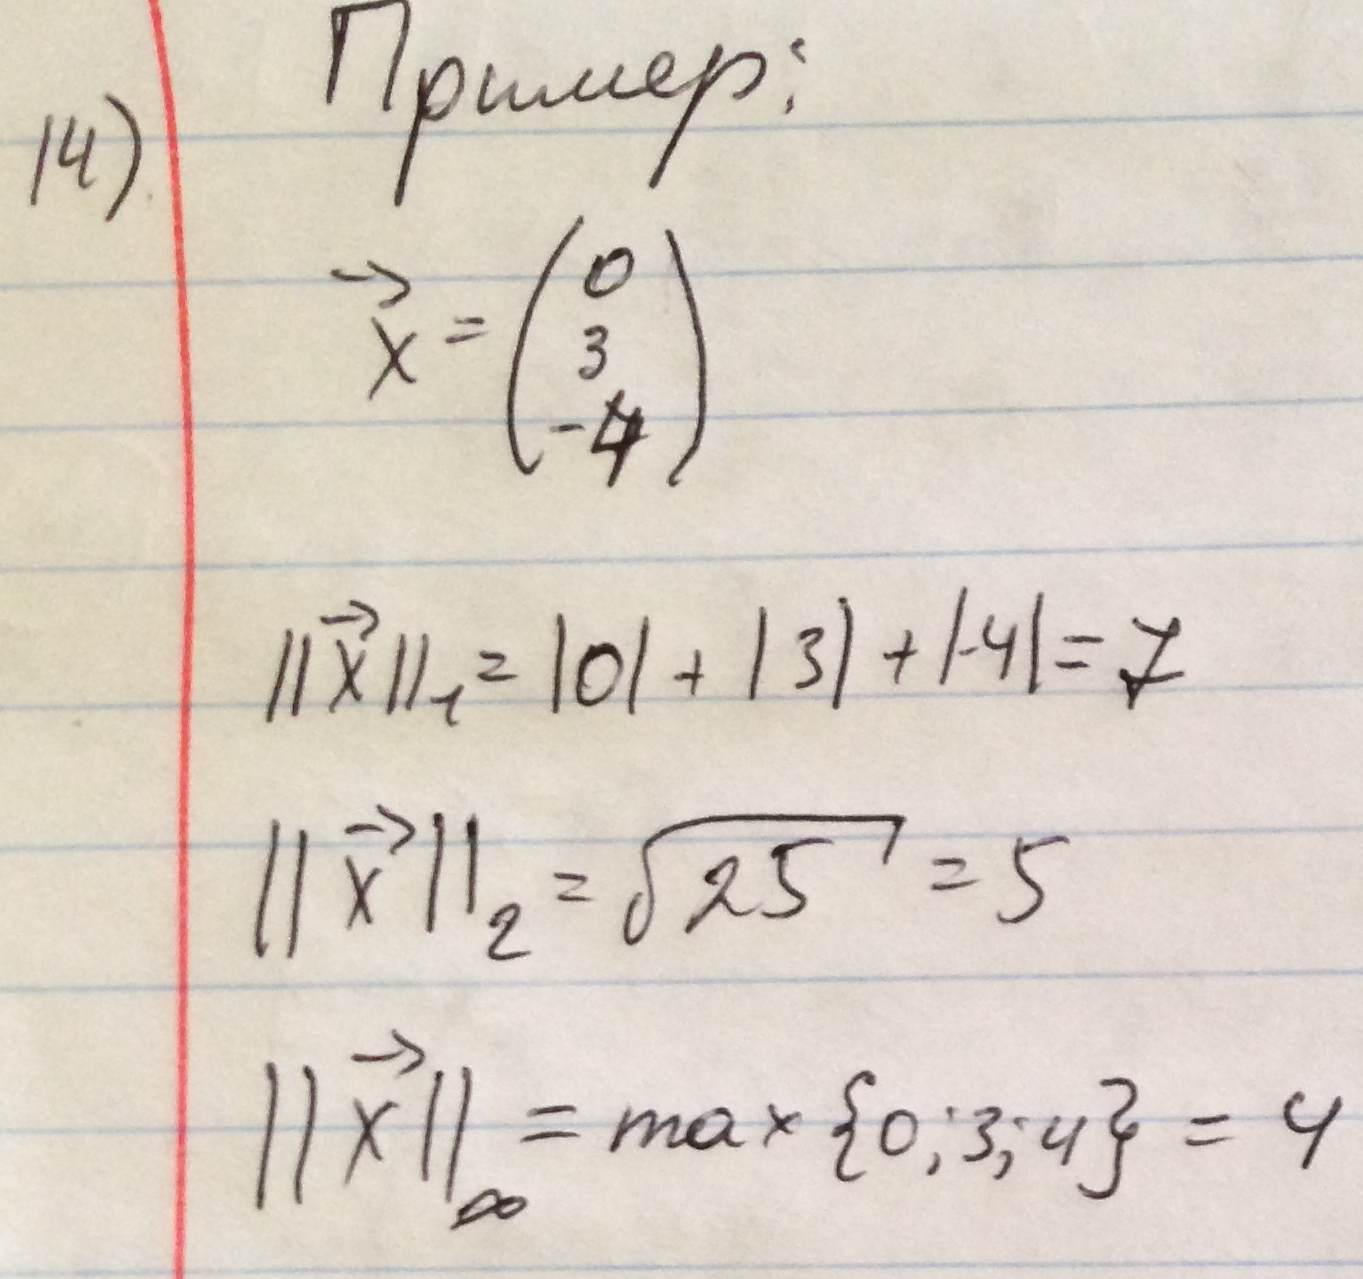 Пример:
14)
x⃗ = (0
3
-4)
||x⃗||₁ = |0| + |3| + |-4| = 7
||x⃗||₂ = √25 = 5
||x⃗||∞ = max {0; 3; 4} = 4